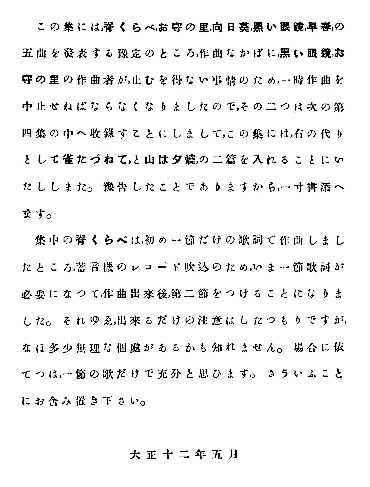 この集には、脊くらべ、お守の里、向日葵、黒い眼鏡、早春の
五曲を發表する豫定のところ、作曲なかばに、黒い眼鏡、お
守の里の作曲者が、止むを得ない事情のため、一時作曲を
中止せねばならなくなりましたので、その二つは次の第
四集の中へ收錄すことにしまして、この集には、右の代り
として雀たづねて、と山は夕燒、の二篇を入れることにい
たししまた。豫告したことでありますから、一寸書添へ
ます。
集中の脊くらべは、初め一節だけの歌詞で作曲しまし
たところ、蓄音機のレコード吹込のため、いま一節歌詞が
必要になつて、作曲出來後、第二節をつけることになりま
した。それゆゑ、出來るだけの注意はしたつもりですが、
なほ多少無理な個處があるかも知れません。場合に依
てつは、一節の歌だけで充分と思ひます。さういふこと
にお含み置き下さい。
大正十二年五月